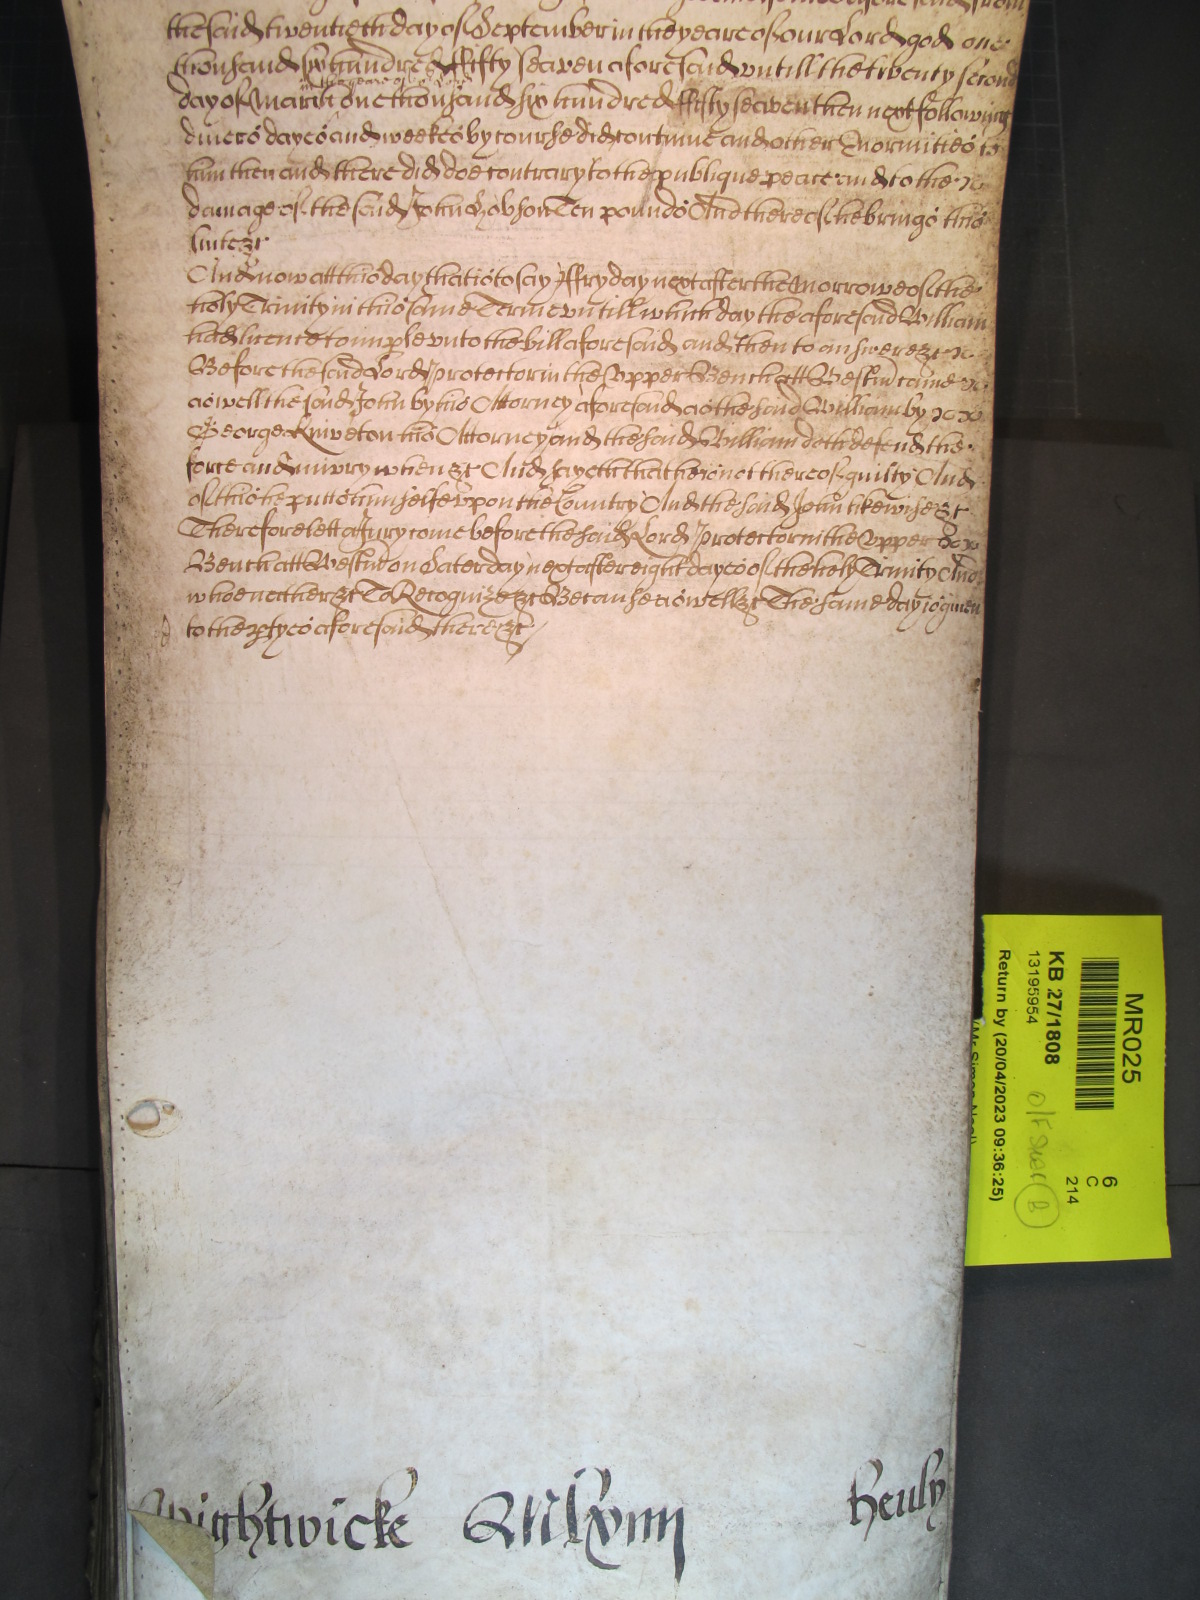 the said twentieth day of September in the yeare of our Lord god one
thousand six hundred & fifty seaven aforesaid untill the twenty second
in the yeare of our Lord
day of March one thousand six hundred fifty seaven then next following
divers dayes and weekes by course did continue and other Enormities to
him then and there did doe contrary to the publique peace and to the
damage of the said John Hobson Ten pounds And thereof he brings this
suite &c
And now att this day that is to say ffryday next after the Morrowe of the
holy Trinity in this same Terme untill which day the aforesaid William
had licence to imple unto the bill aforesaid and then to answere &c
Before the said Lord Protector in the Upper Bench att Westm came
as well the said John by his Attorney aforesaid as the said William by
George Kniveton his Attorney and the said William doth defend the
force and iniury when &c And sayeth that he is not thereof guilty And
of this he putts him selfe upon the Country And the said John likewise &c
Therefore lett a Jury come before the said Lord Protector in the Upper
Bench att Westm on Saterday next after eight dayes of the holy Trinity And
who neather &c To Recognize &c Because as well &c The same day is given
to the ptyes aforesaid there &c
Wightwicke Mlxviiij Henly
MR025
6
C
214
KB 27/1808
13195954
Return by (20/04/2023 09:36:25)